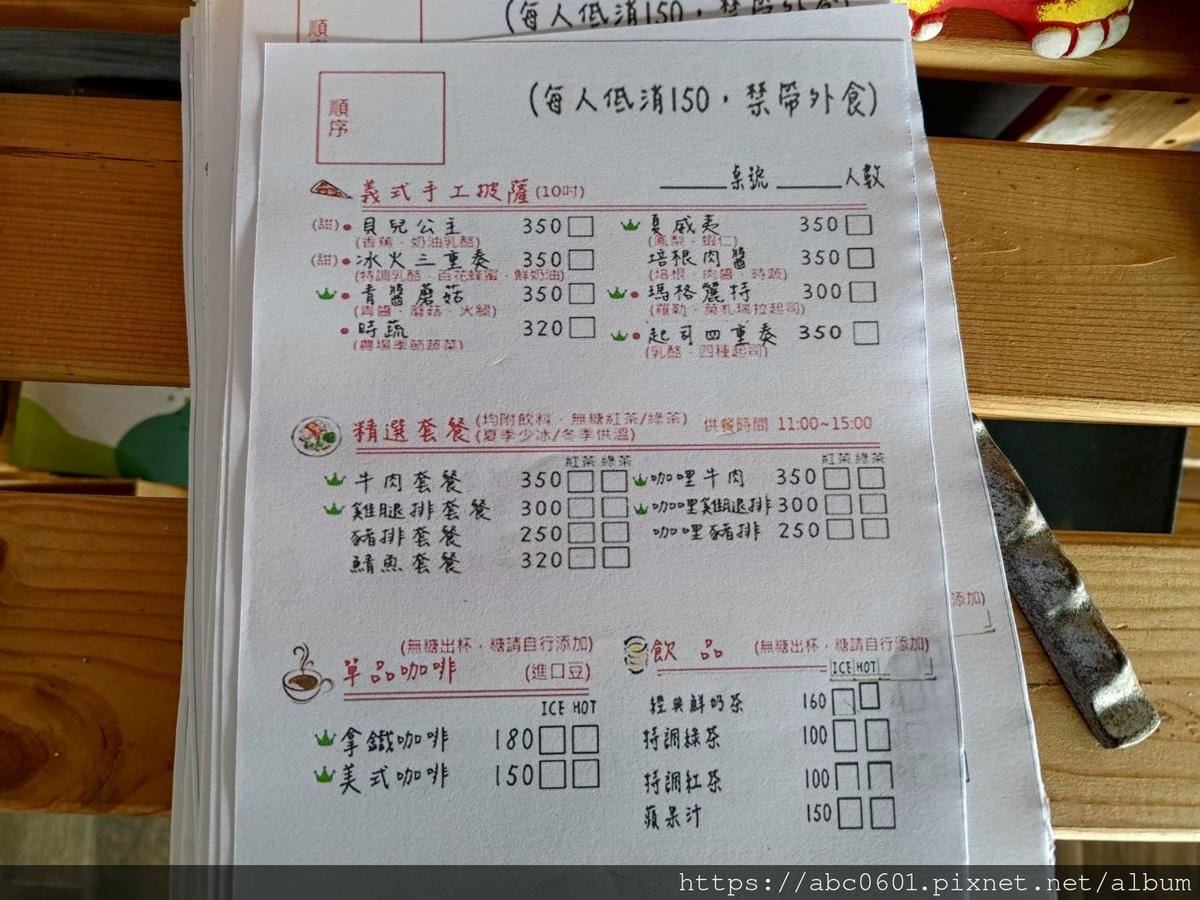 (每人低消150，禁帶外食)
順序
(每人低消150，禁帶外食)
桌號 人數
義式手工披薩(10吋)
(甜)•貝兒公主 350
(香蕉、奶油乳酪)
(甜)•冰火三重奏 350
(特調乳酪、百花蜂蜜、鮮奶油)
•青醬蘑菇 350
(青醬、蘑菇、火腿)
•時蔬 320
(農場季節蔬菜)
夏威夷 350
(鳳梨、蝦仁)
培根肉醬 350
(培根、肉醬、時蔬)
•瑪格麗特 300
(羅勒、莫札瑞拉起司)
•起司四重奏 350
(乳酪、四種起司)
精選套餐(均附飲料、無糖紅茶/綠茶)
(夏季少冰/冬季供溫)
供餐時間 11:00~15:00
紅茶 綠茶
牛肉套餐 350
雞腿排套餐 300
豬排套餐 250
鯖魚套餐 320
紅茶 綠茶
咖哩牛肉 350
咖哩雞腿排 300
咖哩豬排 250
(無糖出杯，糖請自行添加)
單品咖啡 (進口豆)
ICE HOT
拿鐵咖啡 180
美式咖啡 150
飲品 (無糖出杯，糖請自行添加)
ICE HOT
經典鮮奶茶 160
特調綠茶 100
特調紅茶 100
蘋果汁 150
添加)
https://abc0601.pixnet.net/album